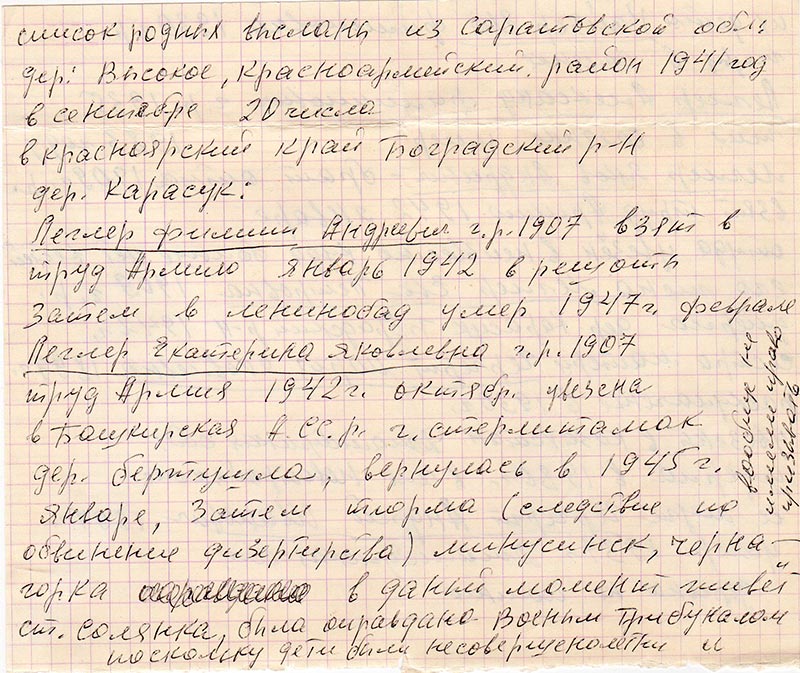 список родных высланы из Саратовской обл:
дер: Высокое, Красноармейский. район 1941 год
в сентябре 20 числа
в Красноярский край Боградский р-н
дер. Карасук:
Пеглер Филипп Андреевич г.р. 1907 взят в
труд Армию январь 1942 в решоть
Затем в ленинобад умер 1947г. феврале
Пеглер Екатерина Яковлевна г.р. 1907
труд Армия 1942г. октябр. увезена
в Башкирская А.СС.р. г. стерлитамак
дер. бертушла, вернулась в 1945г.
январе, Затем тюрма (следствие по
обвинение дизертирства) минусинск, черна-
горка в даный момент живёт
ст. Солянка, была оправдано Военым Трибуналом
поскольку дети были несовершенолетни и
вообще не
имели право
призывать